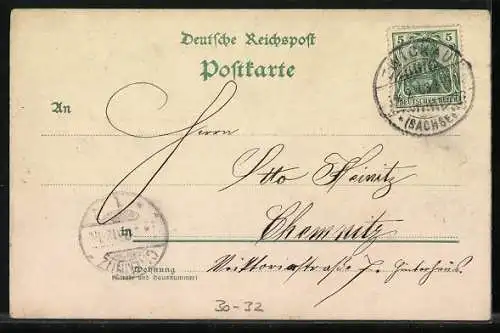 Deutsche Reichspost
Postkarte
5 5
ZWICKAU
DEUTSCHES REICH
* (SACHSEN)
An
Herrn
Otto Heinitz
in
Chemnitz
Wohnung
(Straße und Hausnummer)
Viktoriastraße 7. Hinterhaus.
30-32